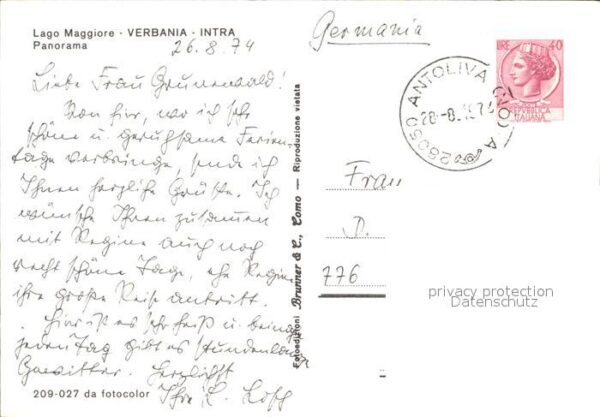 Lago Maggiore · VERBANIA · INTRA
Panorama
26.8.74
Liebe Frau Grunewald!
Von hier, wo ich sehr
schöne u. geruhsame Ferien-
tage verbringe, sende ich
Ihnen herzliche Grüße. Ich
wünsche Ihnen zusammen
mit Regine auch noch
recht schöne Tage, ehe Regine
ihre große Reise antritt.
Hier ist es sehr heiß u. beinah
jeden Tag gibt es stundenlang
Gewitter. Herzlichst
Ihre L.
209-027 da fotocolor
Fotoedizioni Brunner & C., Como — Riproduzione vietata
Germania
LIRE 40
REPVBBLICA
ITALIANA
28050 ANTOLIVA (NO) A
28-8.1974
Frau
D.
776
privacy protection
Datenschutz